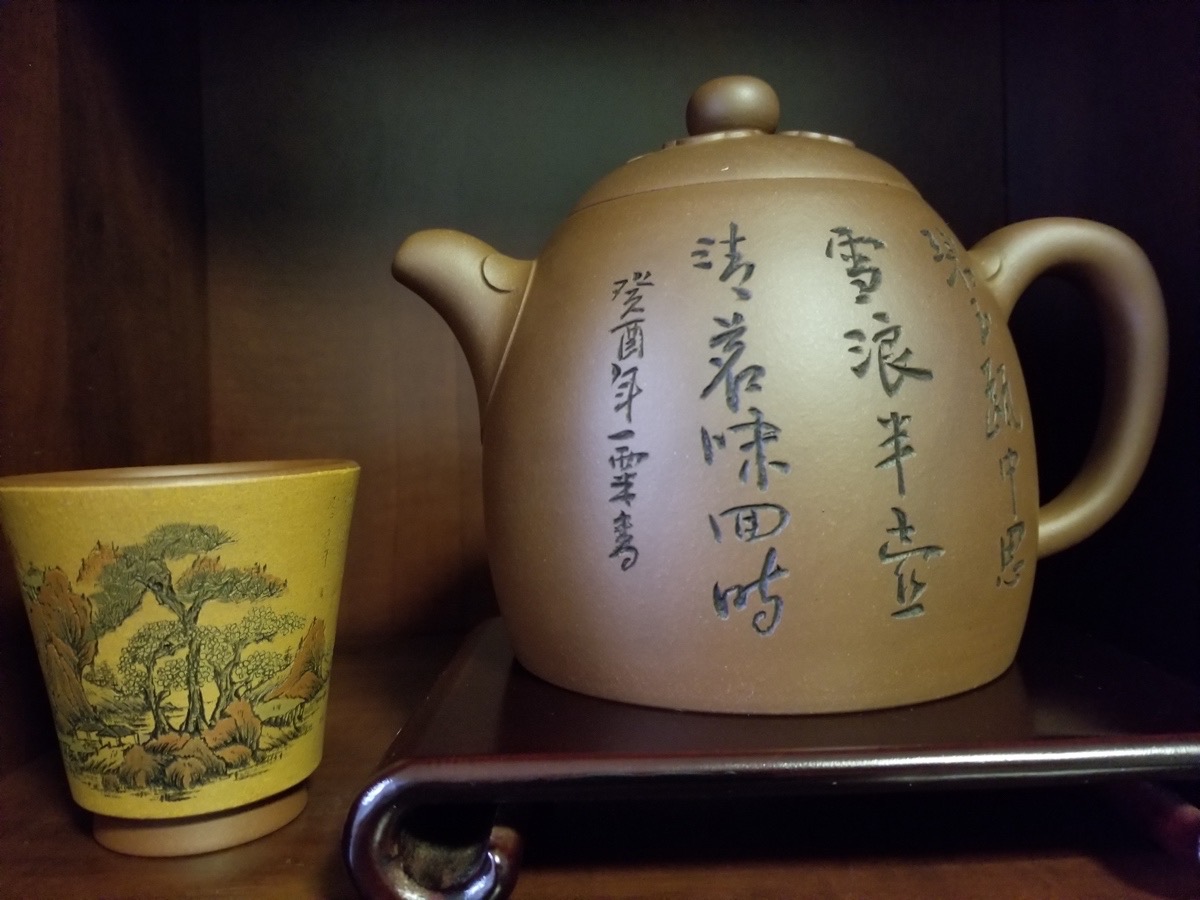 中思
雪浪半壶
清茗味回时
癸酉年一粟書